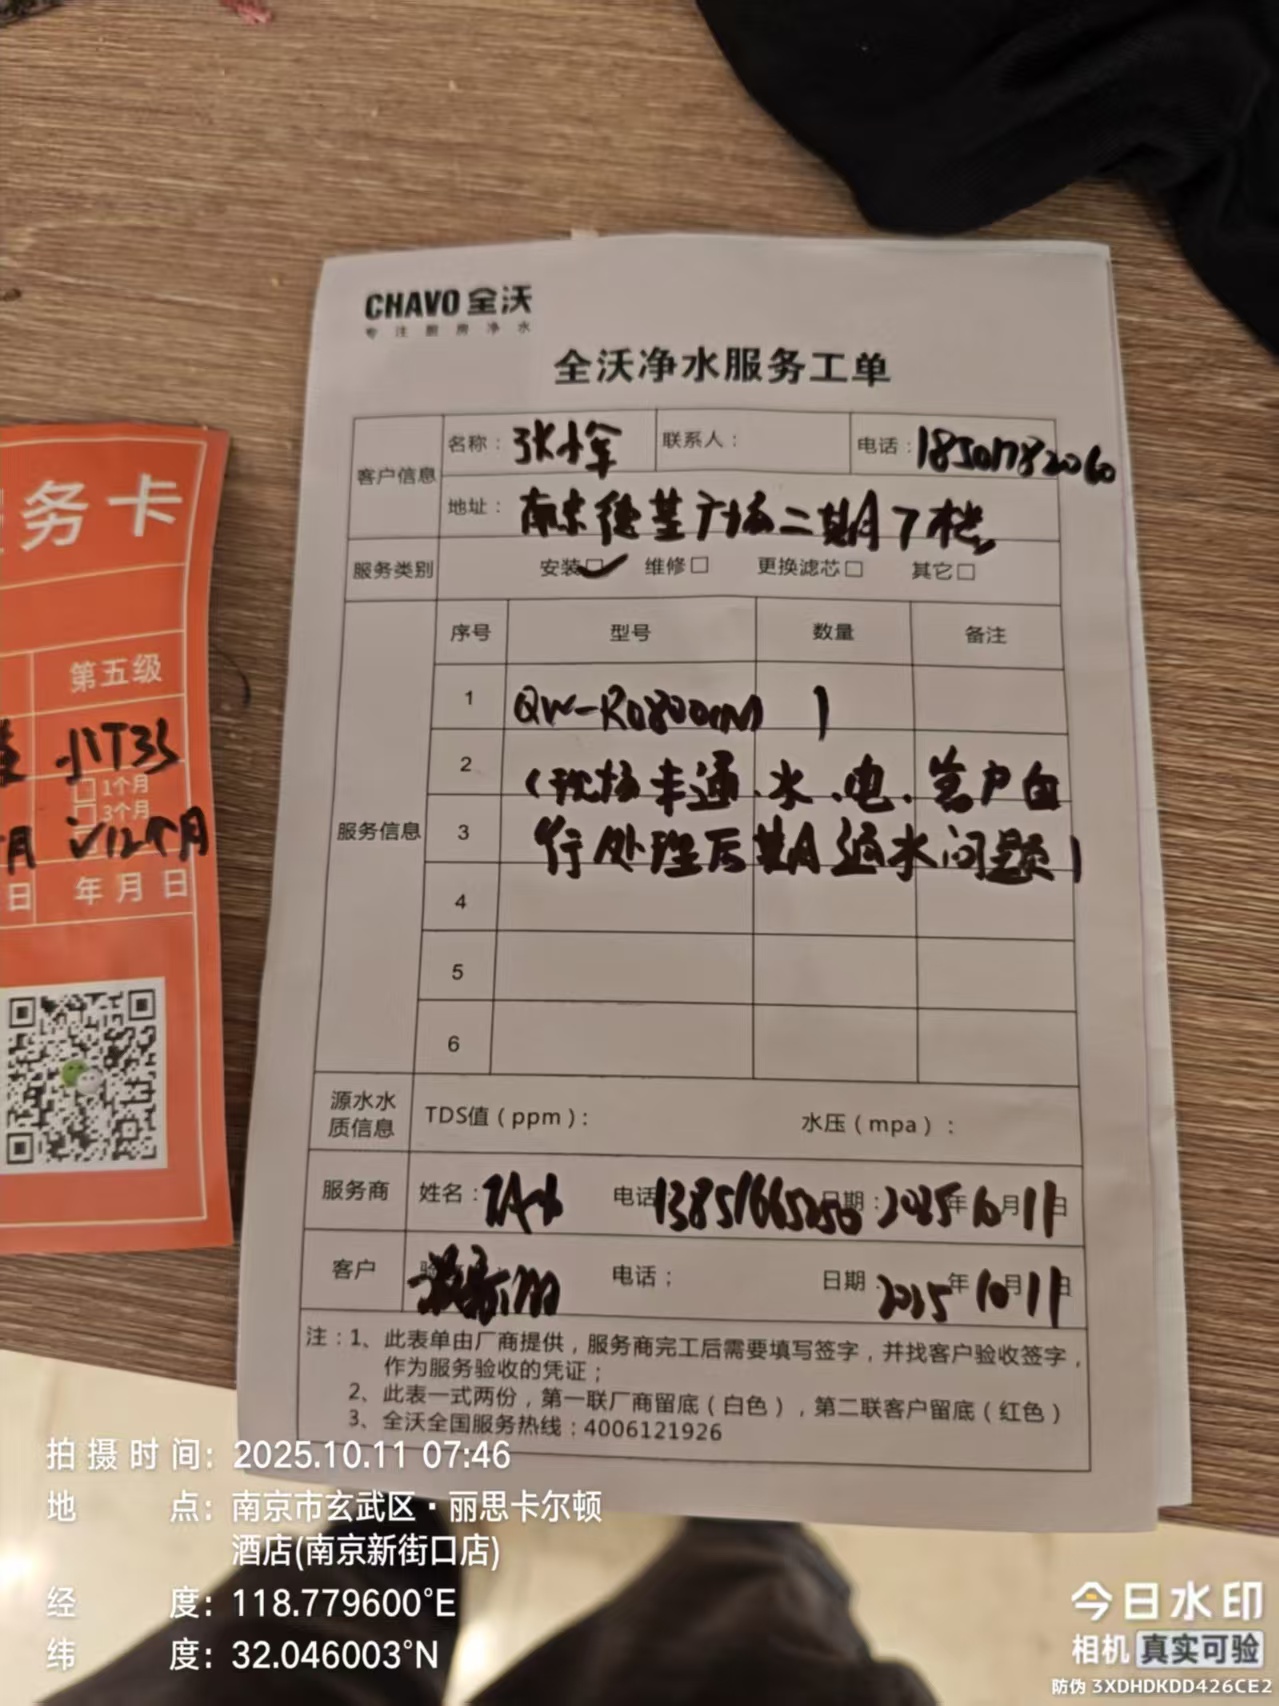 CHAVO 全沃
专注厨房净水
全沃净水服务工单
客户信息
名称：张小军 联系人： 电话：18501782060
地址：南京德基广场二期7楼
服务类别 安装☑ 维修□ 更换滤芯□ 其它□
服务信息
序号 型号 数量 备注
1 QW-RO800(M) 1
2 （现场未通、水、电、客户自
3 行处理后期通水问题）
4
5
6
源水水质信息 TDS值（ppm）： 水压（mpa）：
服务商 姓名： 电话 13851665050 日期：2025年10月11日
客户 电话； 日期 2025年10月11日
注：1、此表单由厂商提供，服务商完工后需要填写签字，并找客户验收签字，
作为服务验收的凭证；
2、此表一式两份，第一联厂商留底（白色），第二联客户留底（红色）
3、全沃全国服务热线：4006121926
务卡
第五级
1个月
3个月
月 ✓12个月
日 年月日
拍摄时间：2025.10.11 07:46
地点：南京市玄武区·丽思卡尔顿
酒店(南京新街口店)
经度：118.779600°E
纬度：32.046003°N
今日水印
相机 真实可验
防伪 3XDHDKDD426CE2